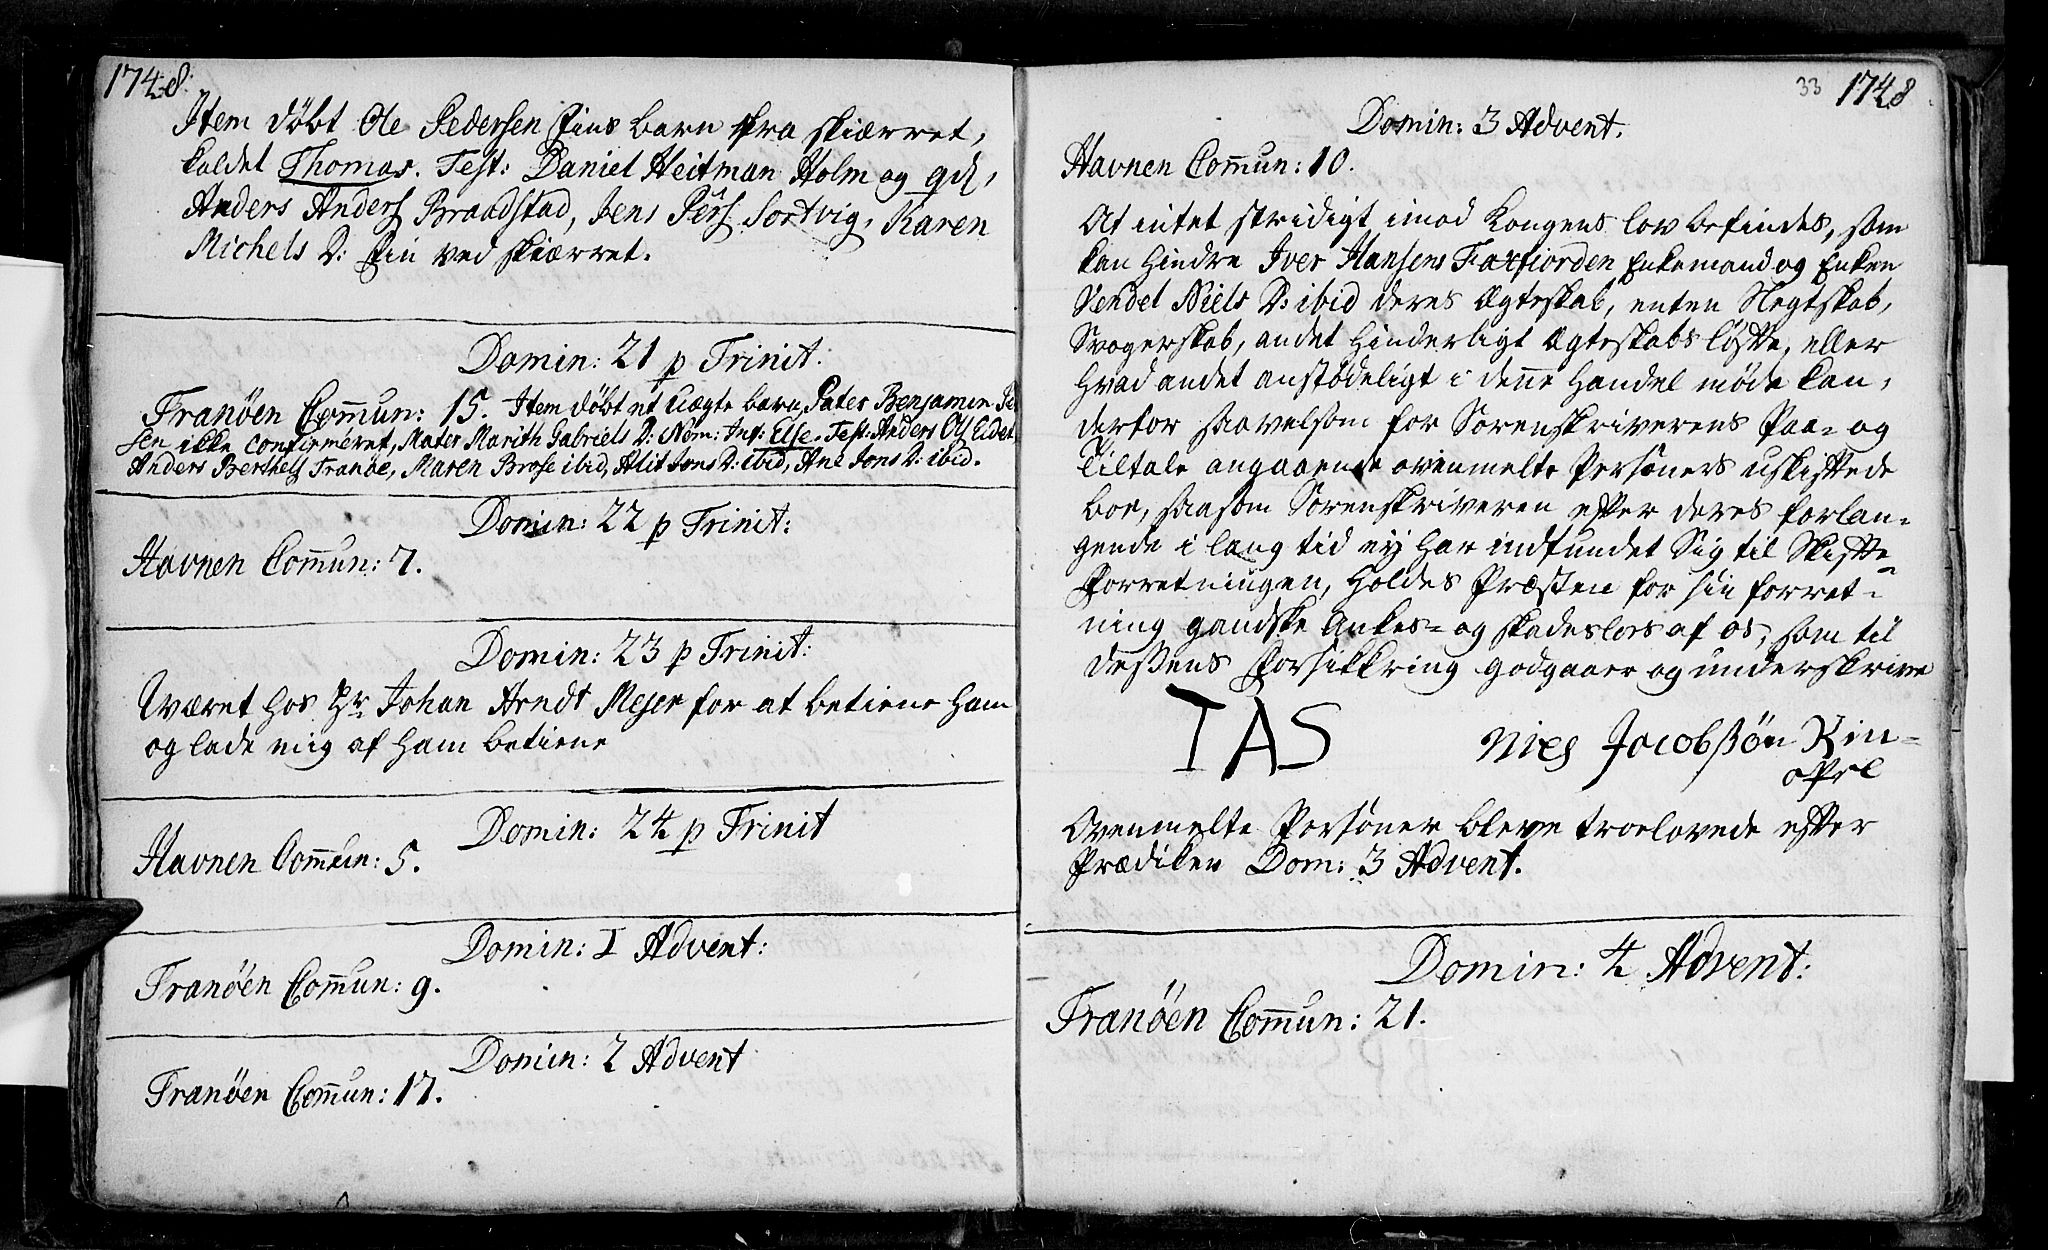 1748.
Item døbt Ole Pedersen Fins barn fra skiærret,
kaldet Thomas. Test: Daniel Heitman Holm og
Anders Anders Braadstad, Jens Pers Sortvig, Karen
Michels D: Fin ved skiærret.
Domin: 21 p Trinit.
Tranöen Com̄un: 15. Item døbt et uægte barn, Pater Benjamin
sen ikke confirmeret, Mater Marith Gabriels D: Nom: Inf: Else. Test: Anders Ols Eidet
Anders Berthels Tranöe, Maren Brose ibid, Alit Jons D: ibid, Ane Jons D: ibid.
Domin: 22 p Trinit:
Havnen Com̄un: 7.
Domin: 23 p Trinit:
Været hos Hr Johan Arndt Mejer for at betiene ham
og lade mig af ham betiene
Domin: 24 p Trinit
Havnen Com̄un: 5.
Domin: I Advent:
Tranöen Com̄un: 9.
Domin: 2 Advent
Tranöen Com̄un: 17.
33 1748
Domin: 3 Advent.
Havnen Com̄un: 10.
At intet stridigt imod Kongens lov befindes, som
kan hindre Iver Hansens Faxfiorden Enkemand og Enken
Vendel Niels D: ibid deres Ægteskab, enten Slegtskab,
Svogerskab, andet hinderligt Ægteskabs løfte, eller
hvad andet anstødeligt i denne handel møde kan,
derfor saavelsom for Sorenskriverens Paa- og
Tiltale angaaende ovenmelte Personers uskiftede
boe, saasom Sorenskriveren efter deres forlan-
gende i lang tid ej har indfundet Sig til Skifte-
Forretningen, holdes Præsten for sin forret-
ning gandske Ankes- og skadesløs af os, som til
dessens Forsikkring godgaaer og underskrive
IAS Niels Jacobßøn Kin-
Ovenmelte Persøner bleve troelovede efter
Prædiken Dom: 3 Advent.
Domin: 4 Advent:
Tranöen Com̄un: 21.